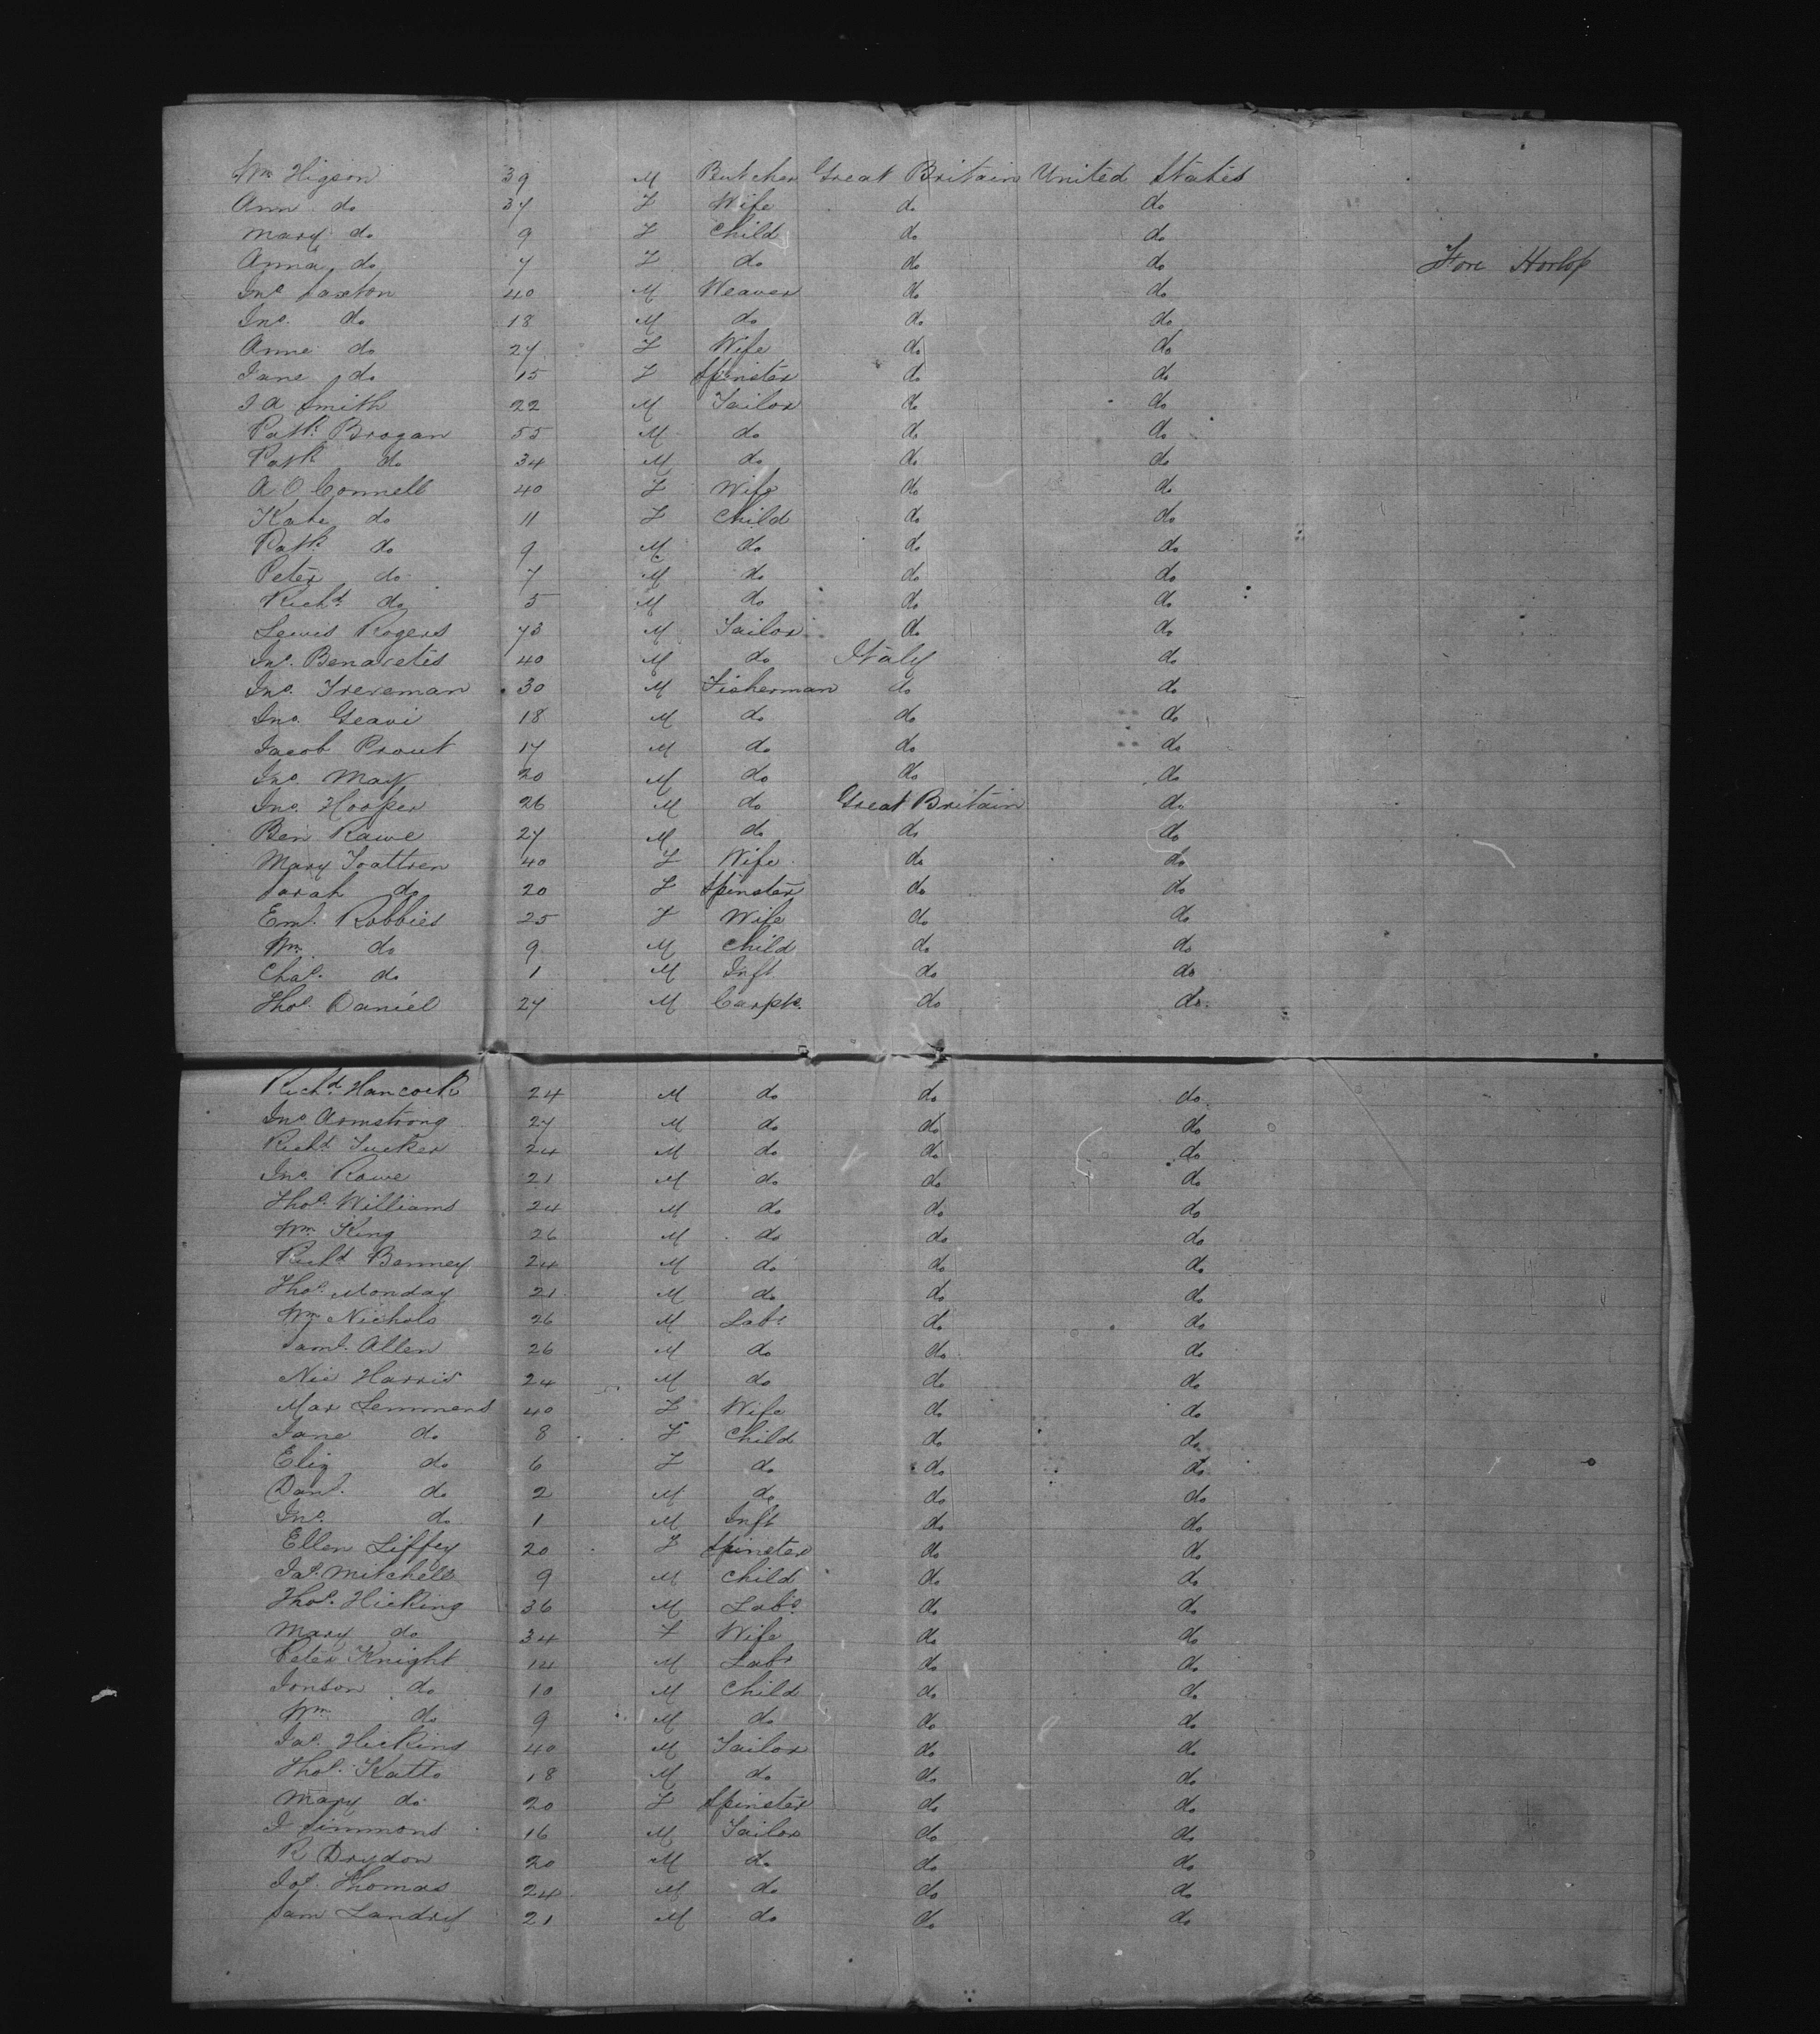 Wm Higson 39 M Butcher Great Britain United States
Ann do 37 F Wife do do
Mary do 9 F Child do do
Anna do 7 F do do do
Jno Saxton 40 M Weaver do do
Jno. do 18 M do do do
Anne do 27 F Wife do do
Jane do 15 F Spinster do do
J A Smith 22 M Tailor do do
Patk. Brogan 55 M do do do
Patk do 34 M do do do
A O Connell 40 F Wife do do
Kate do 11 F Child do do
Patk do 9 M do do do
Peter do 7 M do do do
Richd do 5 M do do do
Lewis Rogers 43 M Tailor do do
Jno. Benaretis 40 M do Italy do
Jno. Frereman 30 M Fisherman do do
Jno. Geavi 18 M do do do
Jacob Prout 17 M do do do
Jno. May 20 M do do do
Jno. Hooper 26 M do Great Britain do
Ben Rawe 27 M do do do
Mary Trattren 40 F Wife do do
Sarah do 20 F Spinster do do
Em. Robbies 25 F Wife do do
Wm. do 9 M Child do do
Chas. do 1 M Inft do do
Thos. Daniel 27 M Carptr. do do.
Richd. Hancock 24 M do do do
Jno Armstrong 27 M do do do
Richd. Tucker 24 M do do do
Jno. Rawe 21 M do do do
Thos. Williams 24 M do do do
Wm. King 26 M do do do
Richd Benney 24 M do do do
Thos. Monday 21 M do do do
Wm. Nichols 26 M Labr do do
Saml. Allen 26 M do do do
Nic Harris 24 M do do do
Mar Lemmens 40 F Wife do do
Jane do 8 F Child do do
Eliz do 6 F do do do
Danl. do 2 M do do do
Jno. do 1 M Inft do do
Ellen Liffey 20 F Spinster do do
Jas. Mitchell 9 M Child do do
Thos. Hicking 36 M Labr. do do
Mary do 34 F Wife do do
Peter Knight 14 M Labr do do
Jonson do 10 M Child do do
Wm do 9 M do do do
Jas. Hickins 40 M Tailor do do
Thos. Katts 18 M do do do
Mary do 20 F Spinster do do
J Simmons 16 M Tailor do do
R Drydon 20 M do do do
Jos. Thomas 24 M do do do
Sam Landry 21 M do do do